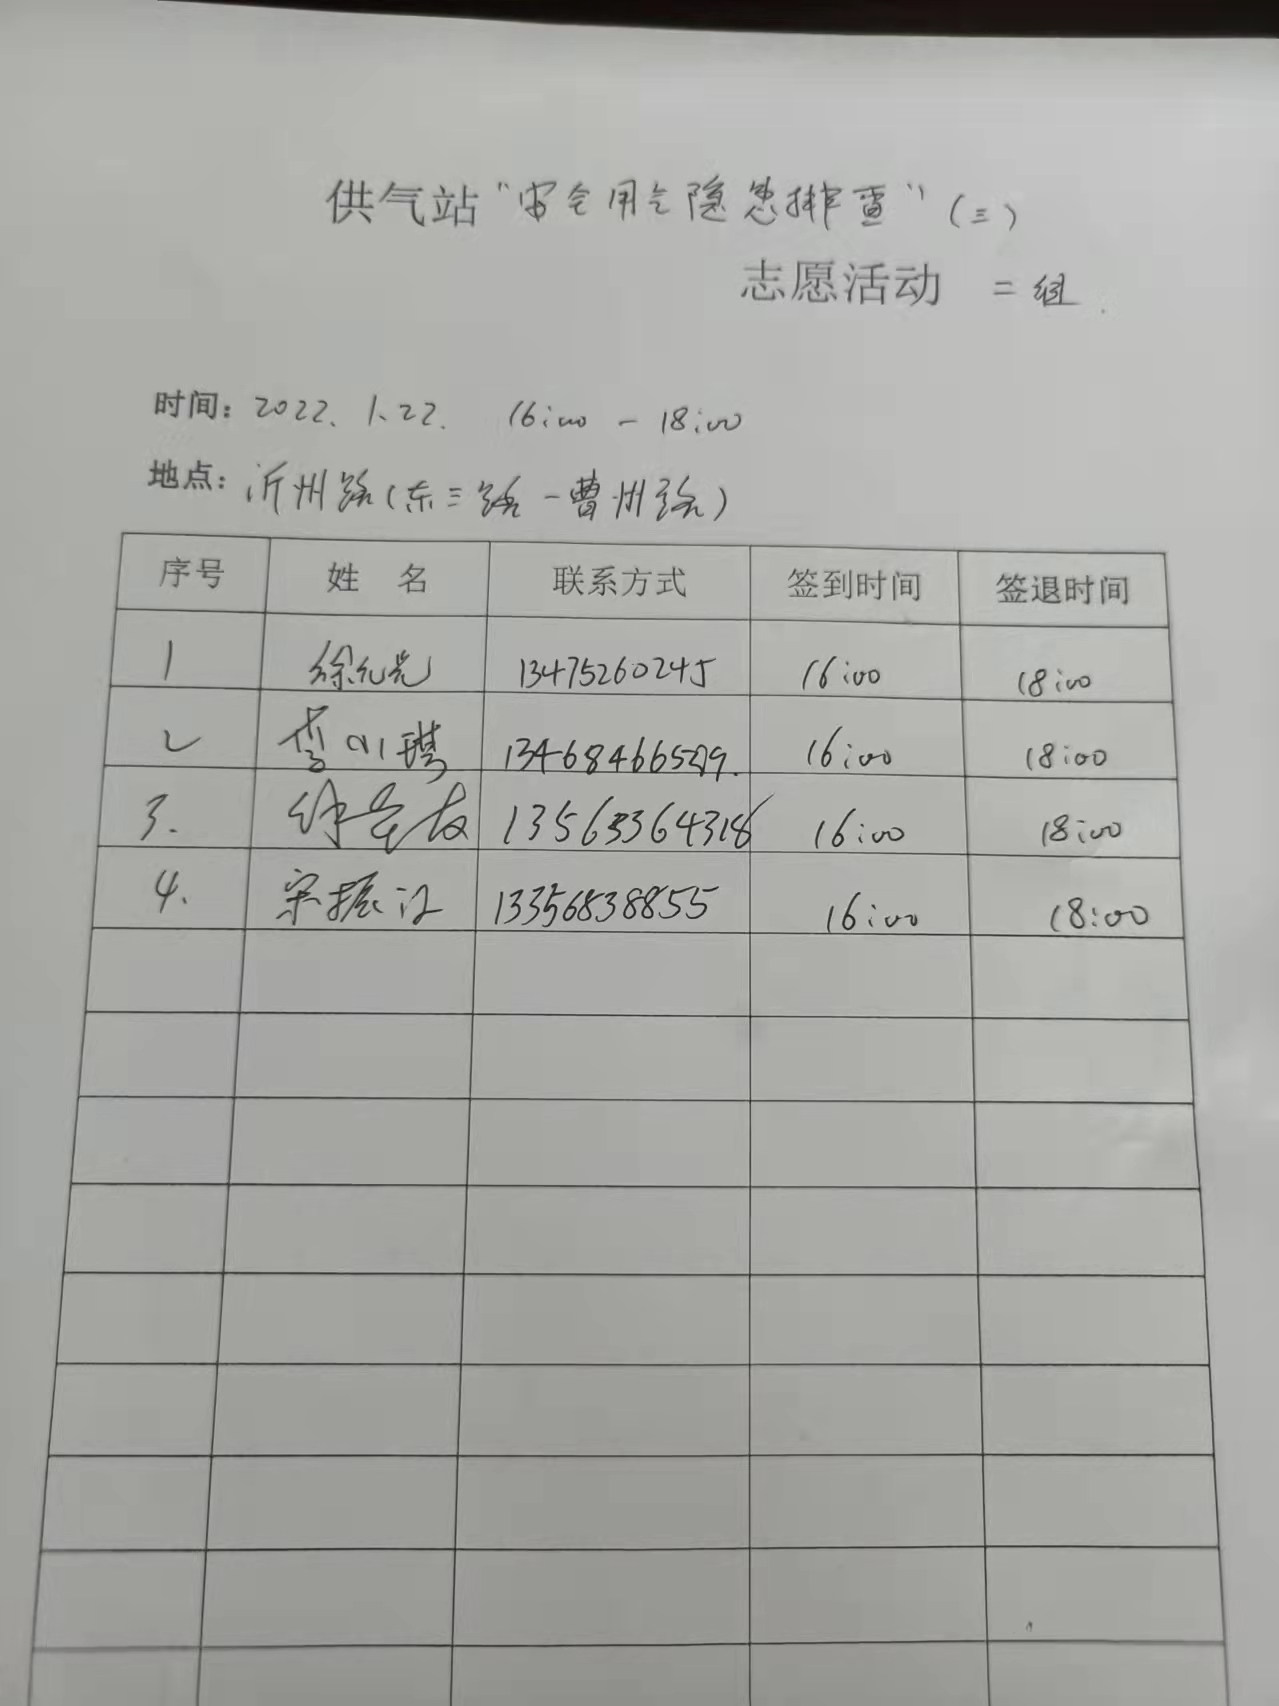 供气站“安全用气隐患排查”(三)
志愿活动 二组
时间: 2022、1、22. 16:00 - 18:00
地点: 沂州路(东三路-曹州路)
序号 姓 名 联系方式 签到时间 签退时间
1 徐元光 13475260245 16:00 18:00
2 李小琪 13468466509. 16:00 18:00
3. 13563364318 16:00 18:00
4. 宋振江 13356838855 16:00 18:00